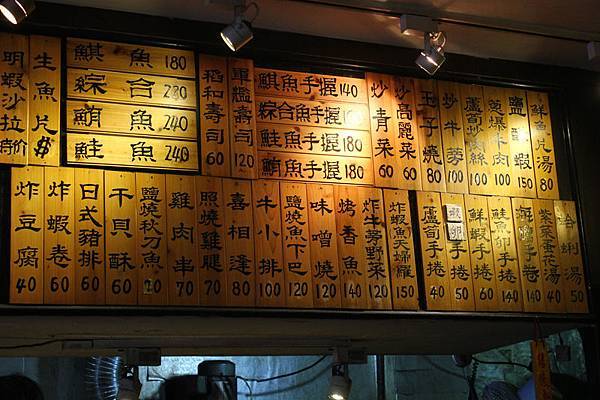 明蝦沙拉 時價
生魚片 $
鯕魚 180
綜合 280
鮪魚 240
鮭魚 240
稻和壽司 60
軍艦壽司 120
鯕魚手握 140
綜合魚手握 180
鮭魚手握 180
鮪魚手握 180
炒青菜 60
炒高麗菜 60
玉子燒 60
炒牛蒡 80
蘆筍炒肉絲 100
蔥爆牛肉 100
鹽 蝦 150
鮮魚片湯 80
炸豆腐 40
炸蝦卷 60
日式豬排 80
干貝酥 120
鹽燒秋刀魚 80
雞肉串 70
照燒雞腿 70
喜相逢 80
牛小排 100
鹽燒魚下巴 120
味噌燒 120
烤香魚 150
炸牛蒡野菜 120
炸蝦魚天婦羅 150
蘆筍手捲 40
蝦卵手捲 50
鮮蝦手捲 60
鮭魚卵手捲 140
海膽手捲 140
紫菜蛋花湯 40
蛤蜊湯 50